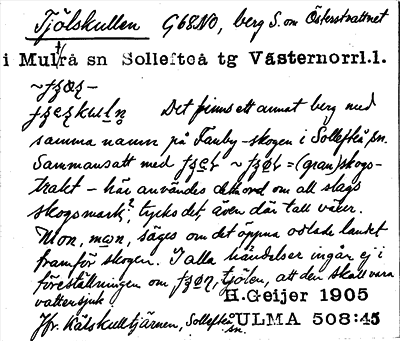 Tjölskullen G68NO, berg S. om Österstrattnet
i Multrå sn Sollefteå tg Västernorrl.l.
Det finns ett annat berg med
samma namn på Tånby-skogen i Sollefteå sn.
Sammansatt med = (gran)skogs-
trakt – här användes det ord om all slags
skogsmark, tyckes det, även där tall växer.
Mon, säges om det öppna odlade landet
framför skogen. I alla händelser ingår ej i
föreställningen om tjölen, att den skall vara
vattensjuk
H.Geijer 1905
Jfr. Kälskulltjärnen, Sollefteå sn.
ULMA 508:45